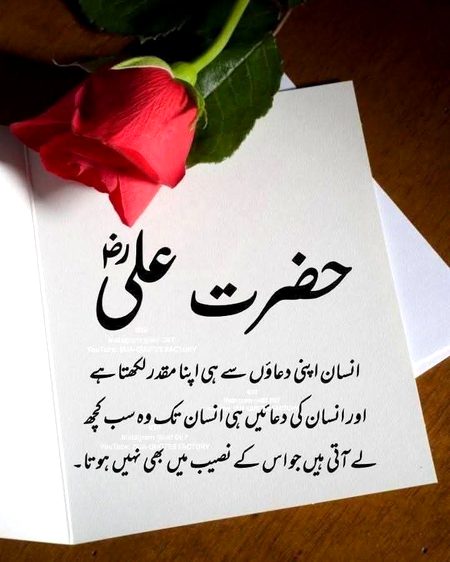 حضرت علی رض
انسان اپنی دعاؤں سے ہی اپنا مقدر لکھتا ہے
اور انسان کی دعائیں ہی انسان تک وہ سب کچھ
لے آتی ہیں جو اس کے نصیب میں بھی نہیں ہوتا۔